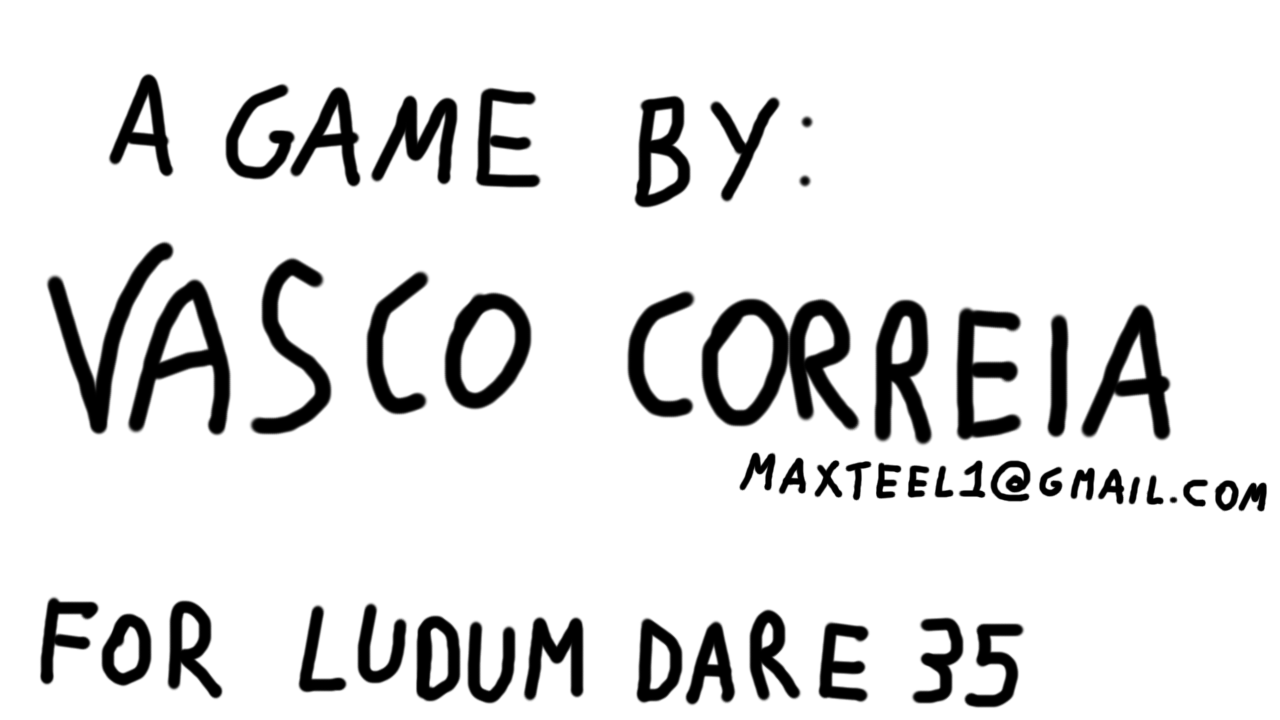 A GAME BY:
VASCO CORREIA
MAXTEEL1@GMAIL.COM
FOR LUDUM DARE 35